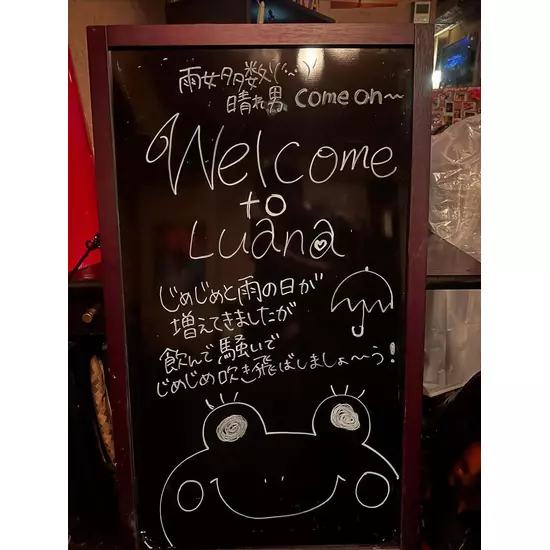 雨女多数!(´~`)
晴れ男 come on~
Welcome
to
Luana
じめじめと雨の日が
増えてきましたが
飲んで騒いで
じめじめ吹き飛ばしましょ~う!